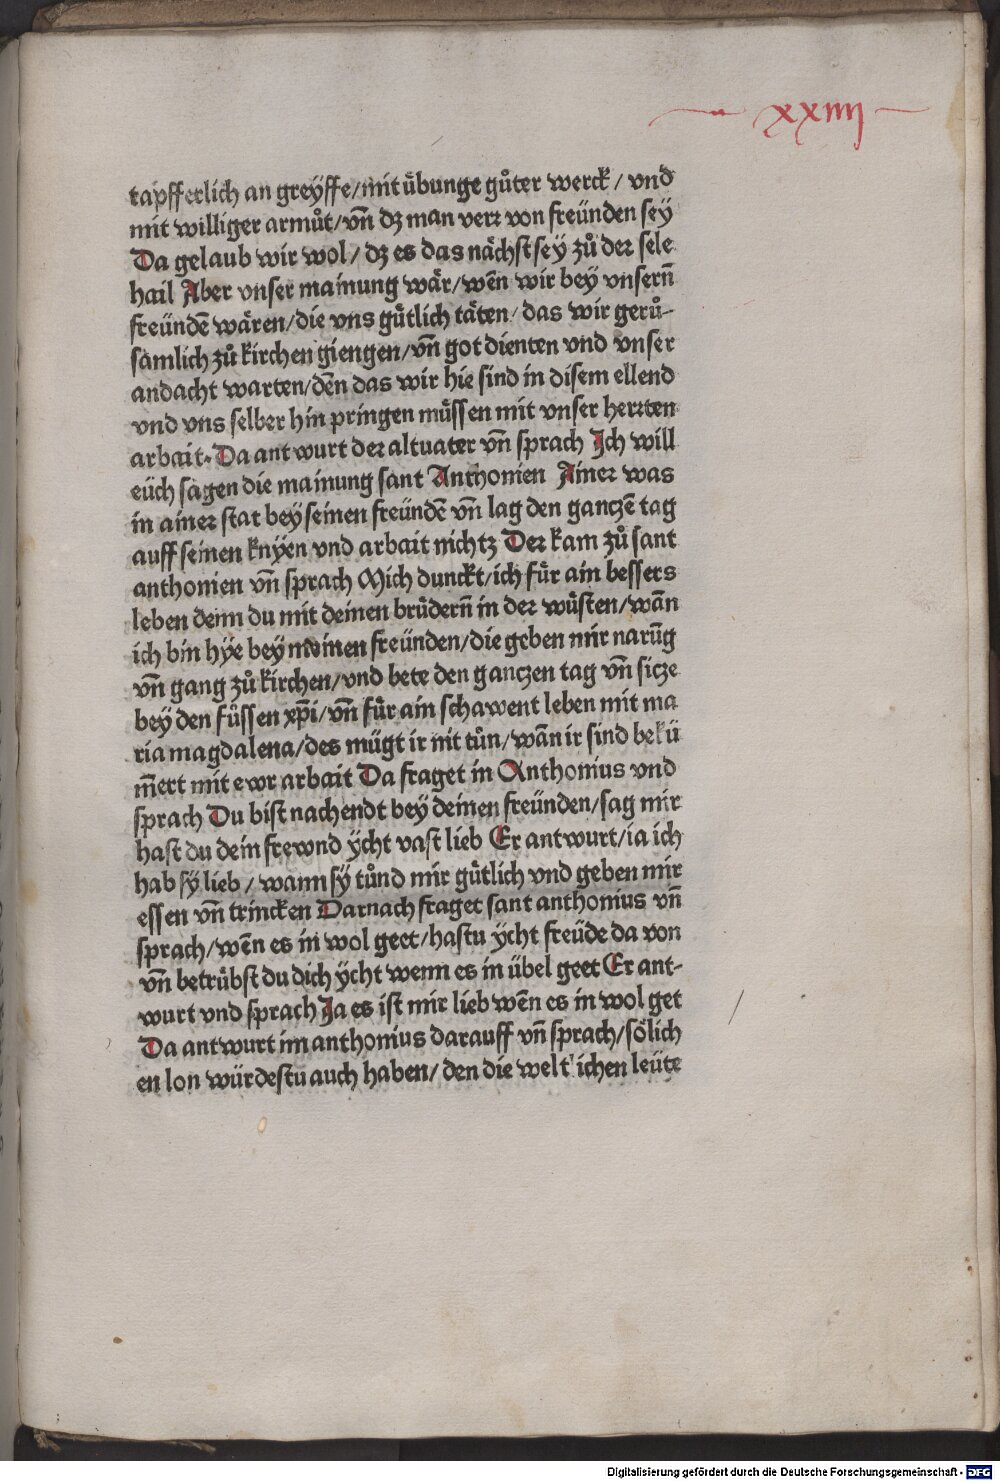 xxiiij
tapfferlich an greÿffe/mit übunge gůter werck/ vnd
mit williger armůt/vñ dz man verr von freünden seÿ
Da gelaub wir wol/ dz es das nächst seÿ zů der sele
hail Aber vnser mainung wär/wen̄ wir bey vnsern̄
freünde᷑ wären/die vns gütlich täten/ das wir gerů-
samlich zů kirchen giengen/vñ got dienten vnd vnser
andacht warten/den̄ das wir hie sind in disem ellend
vnd vns selber hin pringen müssen mit vnser hertzen
arbait. Da ant wurt der altuater vñ sprach Ich will
eüch sagen die mainung sant Anthonien Ainer was
in ainer stat bey seinen freünde᷑ vñ lag den gancze᷑ tag
auff seinen knÿen vnd arbait nichtz Der kam zů sant
anthonien vñ sprach Mich dunckt/ich für ain bessers
leben denn du mit deinen brüdern̄ in der wüsten/wan̄
ich bin hÿe bey meinen freünden/die geben mir narūg
vñ gang zů kirchen/vnd bete den ganczen tag vñ sicze
bey den füssen xp̄i/vñ für ain schawent leben mit ma
ria magdalena/des mügt ir nit tůn/wan̄ ir sind bekü
m̄ert mit ewr arbait Da fraget in Anthonius vnd
sprach Du bist nachendt beÿ deinen freünden/sag mir
hast du dein frewnd ÿcht vast lieb Er antwurt/ia ich
hab sÿ lieb/ wann sÿ tůnd mir gütlich vnd geben mir
essen vñ trincken Darnach fraget sant anthonius vñ
sprach/wen̄ es in wol geet/hastu ÿcht freüde da von
vñ betrübst du dich ÿcht wenn es in übel geet Er ant-
wurt vnd sprach Ja es ist mir lieb wen̄ es in wol get
Da antwurt im anthonius darauff vñ sprach/sölich
en lon würdestu auch haben/ den die welt ichen leüte
Digitalisierung gefördert durch die Deutsche Forschungsgemeinschaft - DFG